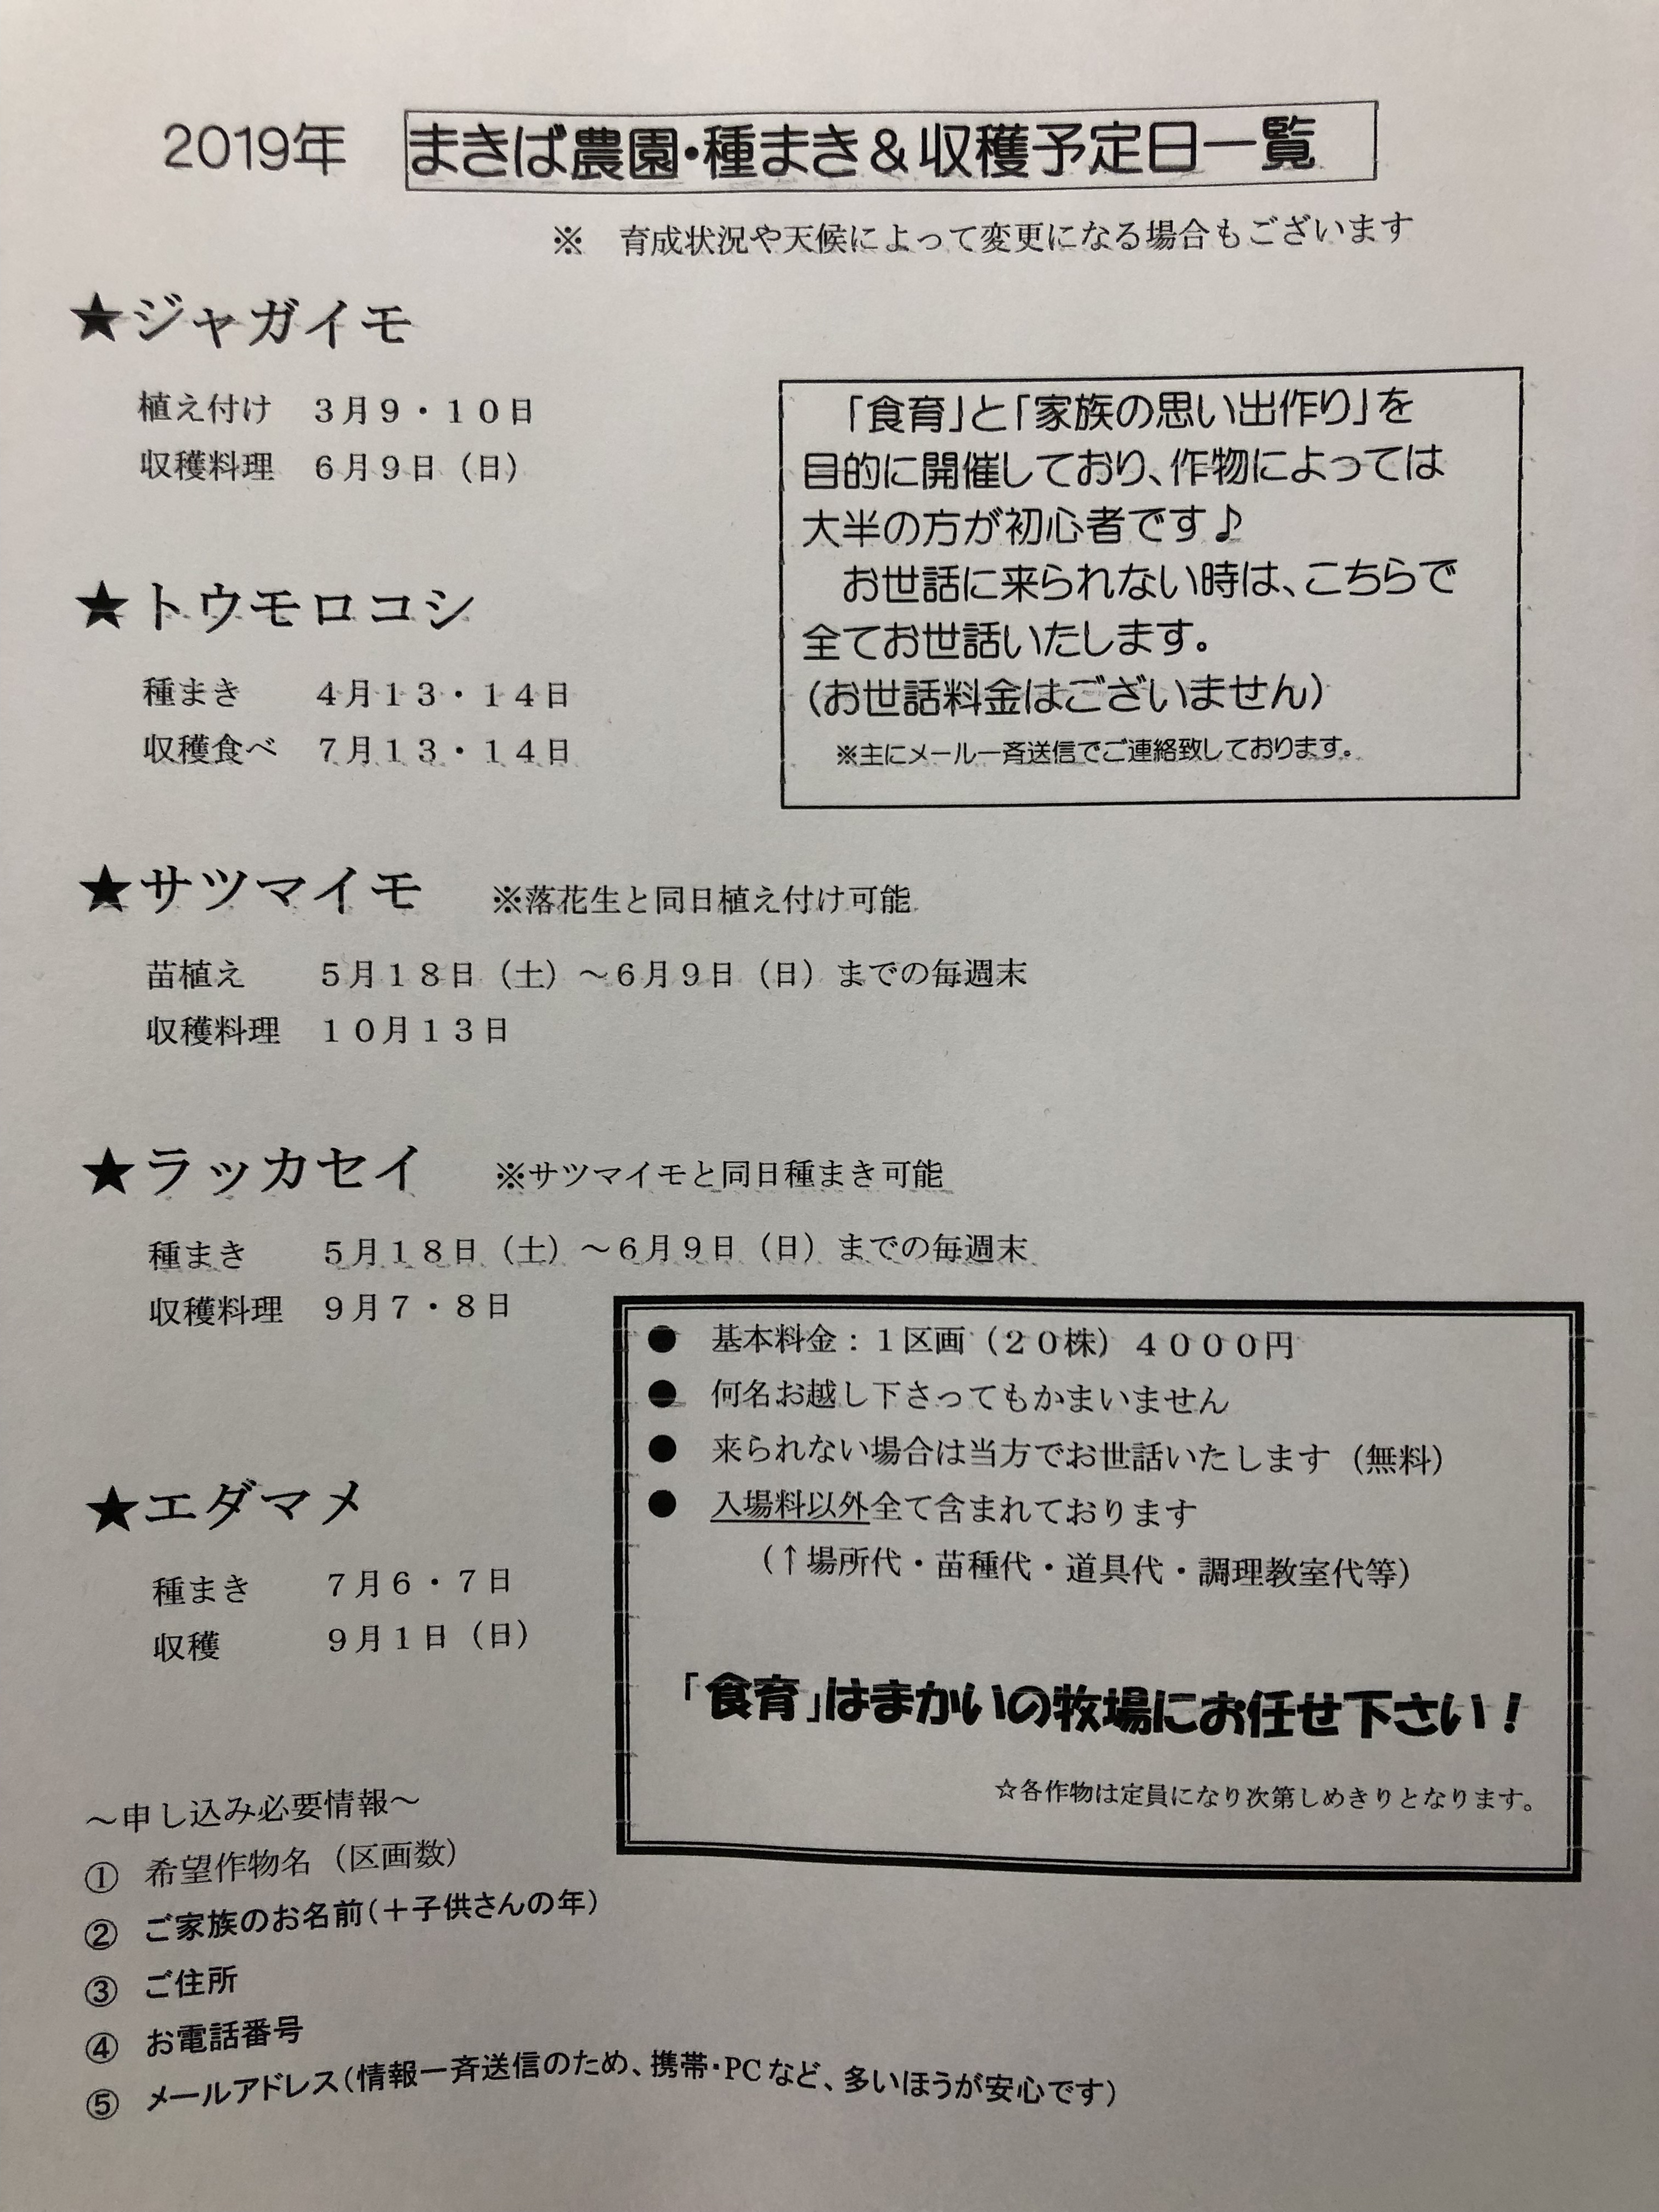 2019年　まきば農園・種まき＆収穫予定日一覧
※　育成状況や天候によって変更になる場合もございます
★ジャガイモ
植え付け　３月９・１０日
収穫料理　６月９日（日）
「食育」と「家族の思い出作り」を
目的に開催しており、作物によっては
大半の方が初心者です♪
お世話に来られない時は、こちらで
全てお世話いたします。
（お世話料金はございません）
※主にメール一斉送信でご連絡致しております。
★トウモロコシ
種まき　４月１３・１４日
収穫食べ　７月１３・１４日
★サツマイモ　※落花生と同日植え付け可能
苗植え　５月１８日（土）～６月９日（日）までの毎週末
収穫料理　１０月１３日
★ラッカセイ　※サツマイモと同日種まき可能
種まき　５月１８日（土）～６月９日（日）までの毎週末
収穫料理　９月７・８日
★エダマメ
種まき　７月６・７日
収穫　９月１日（日）
●　基本料金：１区画（２０株）４０００円
●　何名お越し下さってもかまいません
●　来られない場合は当方でお世話いたします（無料）
●　入場料以外全て含まれております
（↑場所代・苗種代・道具代・調理教室代等）
「食育」はまかいの牧場にお任せ下さい！
☆各作物は定員になり次第しめきりとなります。
～申し込み必要情報～
①　希望作物名（区画数）
②　ご家族のお名前（＋子供さんの年）
③　ご住所
④　お電話番号
⑤　メールアドレス（情報一斉送信のため、携帯・PCなど、多いほうが安心です）